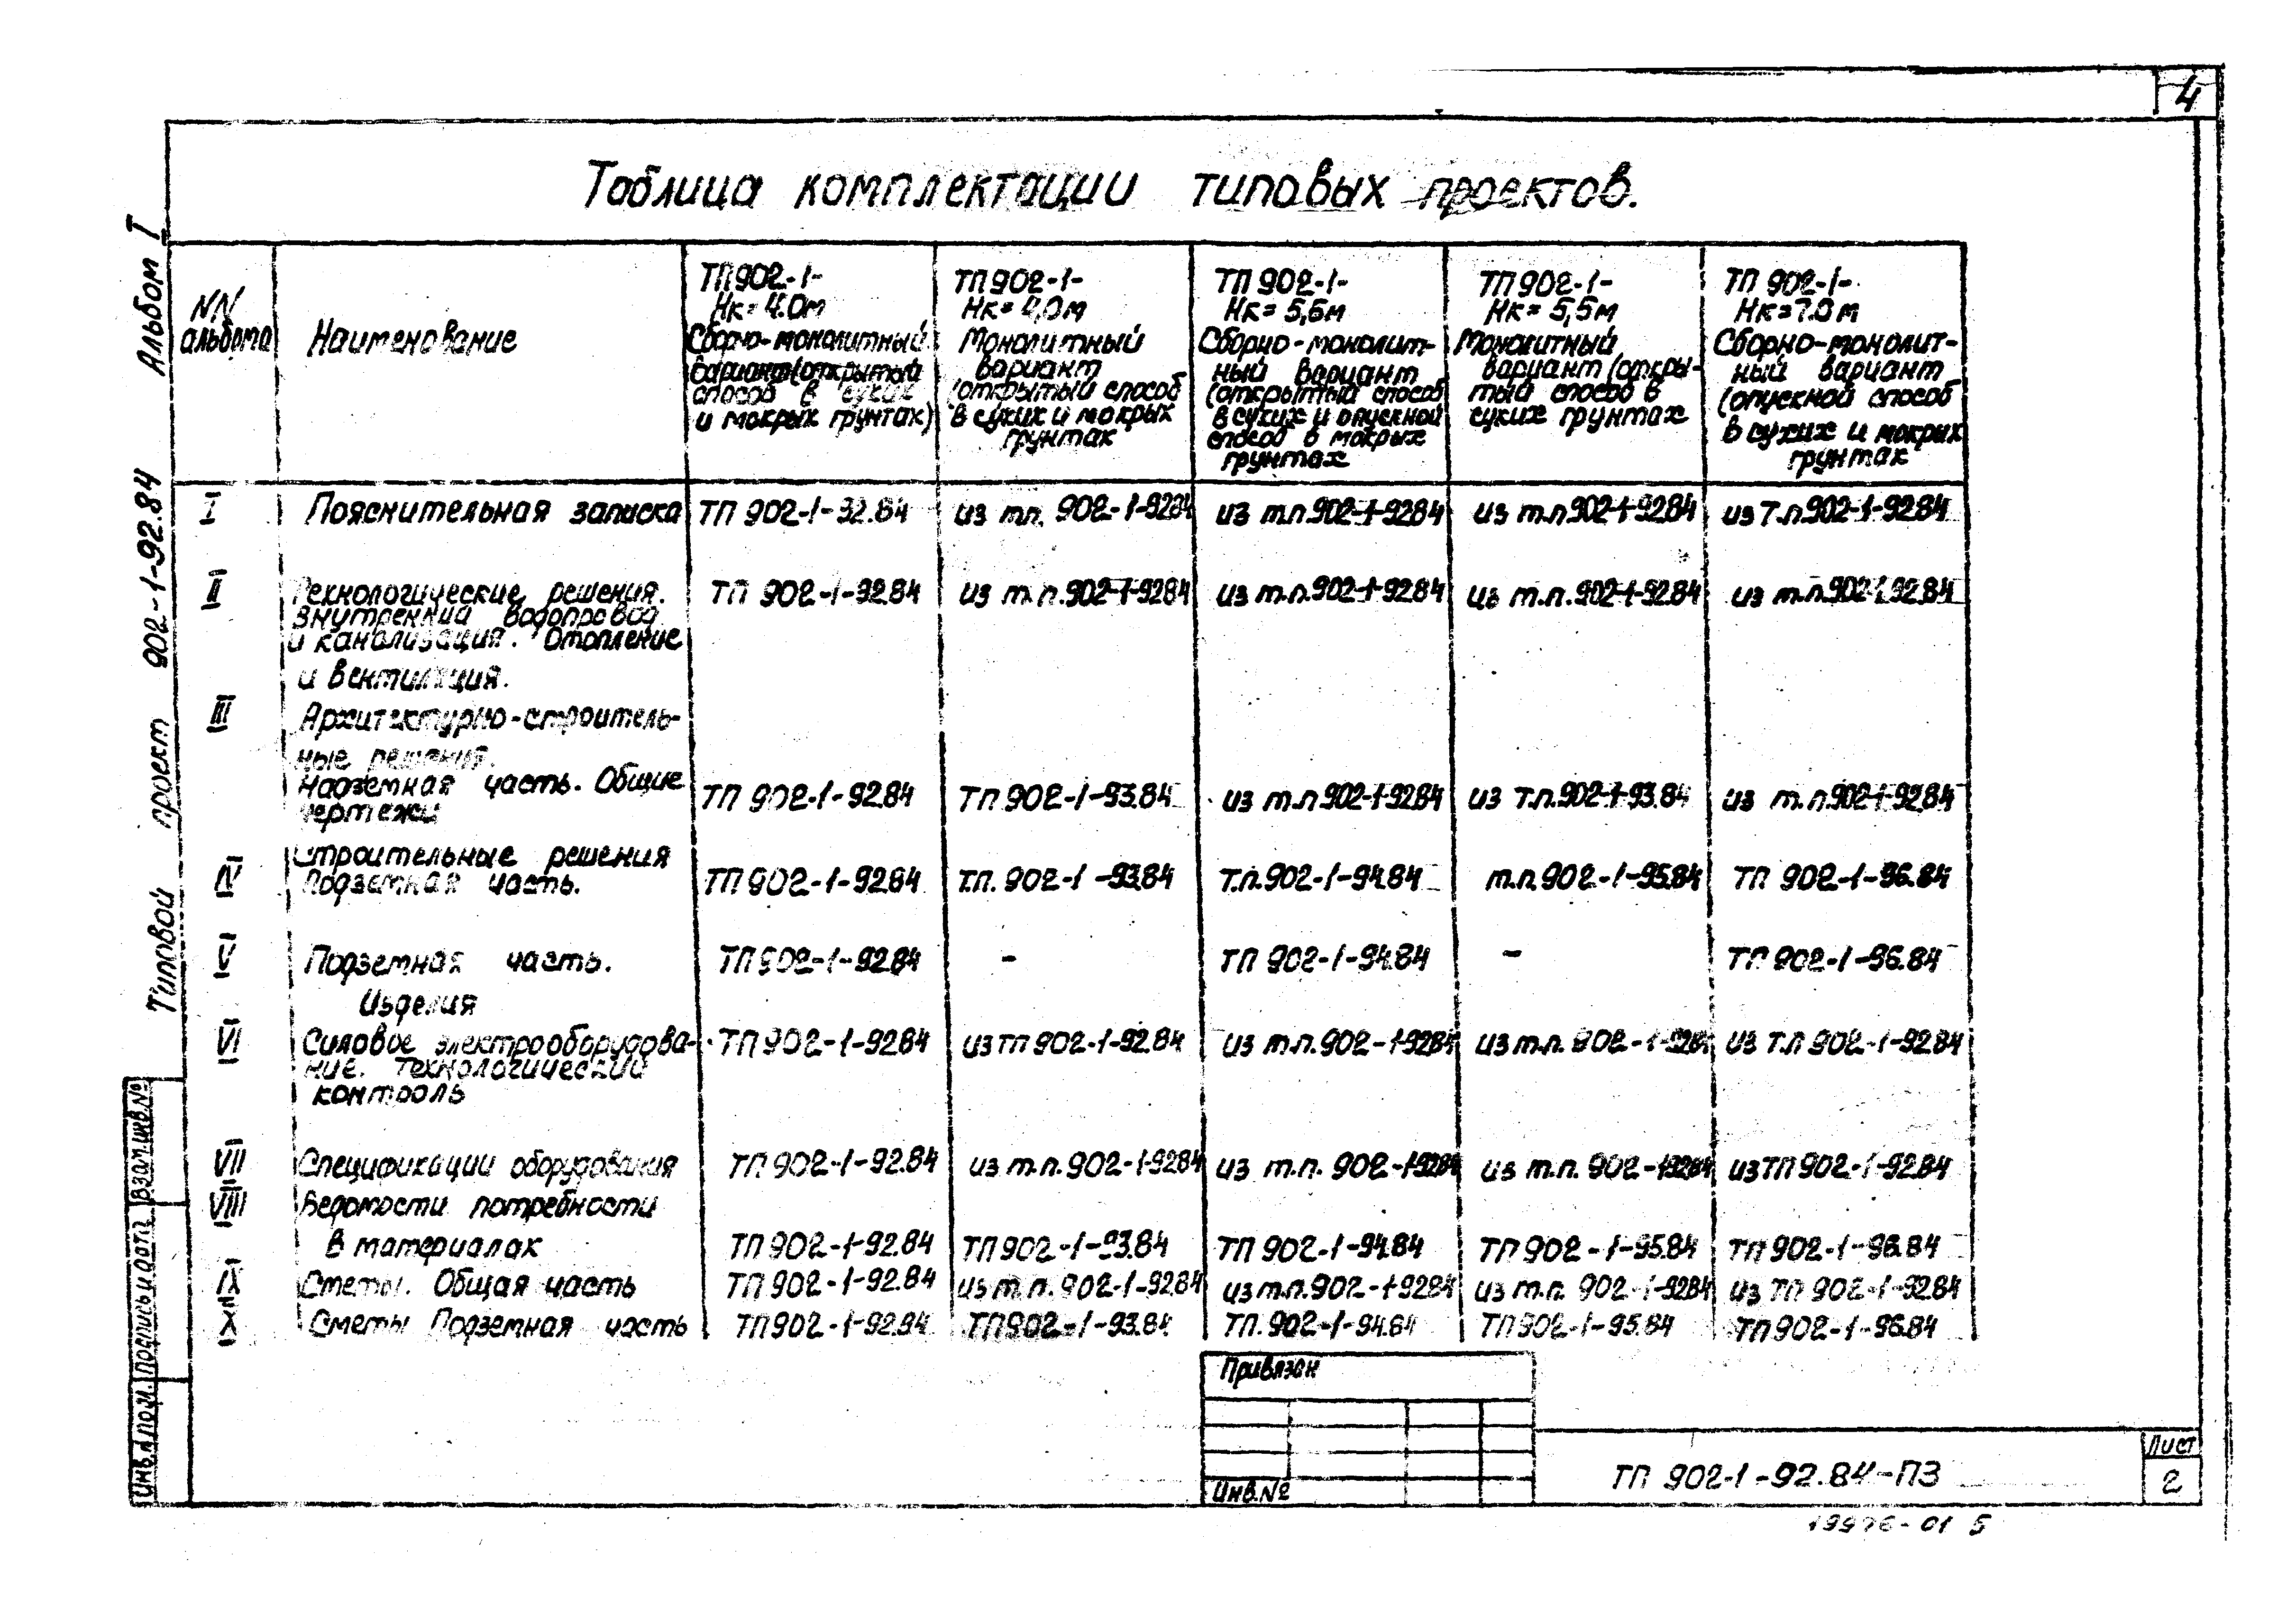 4
Таблица комплектации типовых проектов.
Альбом I
Типовой проект 902-1-92.84
NN альбома
Наименование
ТП 902-1-
Нк = 4.0м
Сборно-монолитный
вариант (открытый
способ в сухих
и мокрых грунтах)
ТП 902-1-
Нк = 4,0м
Монолитный
вариант
(открытый способ
в сухих и мокрых
грунтах
ТП 902-1-
Нк = 5,5м
Сборно-монолит-
ный вариант
(открытый способ
в сухих и опускной
способ в мокрых
грунтах
ТП 902-1-
Нк = 5,5м
Монолитный
вариант (откры-
тый способ в
сухих грунтах
ТП 902-1-
Нк=7.0м
Сборно-монолит-
ный вариант
(опускной способ
в сухих и мокрых
грунтах
I Пояснительная записка ТП 902-1-92.84 из т.п. 902-1-92.84 из т.п.902-1-92.84 из т.п.902-1-92.84 из т.п.902-1-92.84
II Технологические решения. ТП 902-1-92.84 из т.п.902-1-92.84 из т.п.902-1-92.84 из т.п.902-1-92.84 из т.п.902-1-92.84
Внутренний водопровод
и канализация. Отопление
и вентиляция.
III Архитектурно-строитель-
ные решения.
Надземная часть. Общие
чертежи ТП 902-1-92.84 ТП 902-1-93.84 из т.п.902-1-92.84 из т.п.902-1-93.84 из т.п.902-1-92.84
Строительные решения
IV Подземная часть. ТП 902-1-92.84 Т.П. 902-1-93.84 Т.п.902-1-94.84 т.п.902-1-95.84 ТП 902-1-96.84
V Подземная часть. ТП 902-1-92.84 - ТП 902-1-94.84 - ТП 902-1-96.84
Изделия
VI Силовое электрооборудова- ТП 902-1-92.84 из ТП 902-1-92.84 из т.п.902-1-92.84 из т.п. 902-1-92.84 из т.п 902-1-92.84
ние. Технологический
контроль
VII Спецификации оборудования ТП 902-1-92.84 из т.п. 902-1-92.84 из т.п. 902-1-92.84 из т.п. 902-1-92.84 из ТП 902-1-92.84
VIII Ведомости потребности
в материалах ТП 902-1-92.84 ТП 902-1-93.84 ТП 902-1-94.84 ТП 902-1-95.84 ТП 902-1-96.84
IX Сметы. Общая часть ТП 902-1-92.84 из т.п. 902-1-92.84 из т.п.902-1-92.84 из т.п. 902-1-92.84 из ТП 902-1-92.84
X Сметы Подземная часть ТП 902-1-92.84 ТП 902-1-93.84 ТП.902-1-94.84 ТП 902-1-95.84 ТП 902-1-96.84
Привязан
Инв.№
ТП 902-1-92.84-ПЗ
Лист
2
Взам.инв.№
Подпись и дата
Инв.№ подл.
19976-01 5